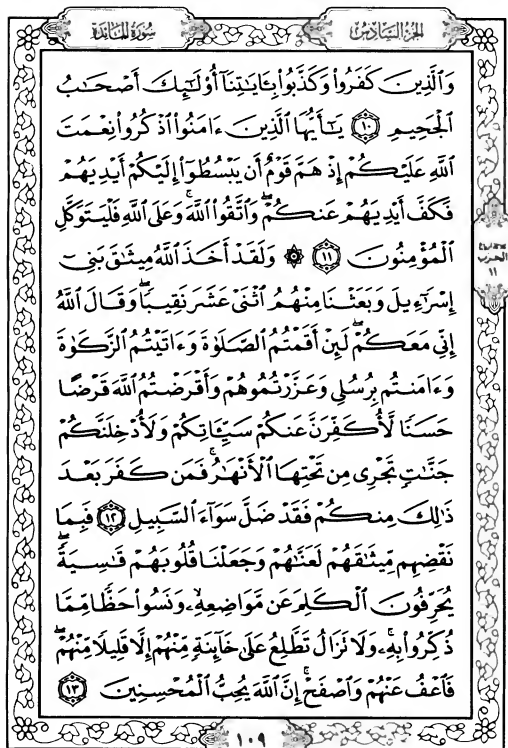 الجزء السادس
سورة المائدة
وَالَّذِينَ كَفَرُوا۟ وَكَذَّبُوا۟ بِـَٔايَـٰتِنَآ أُو۟لَـٰٓئِكَ أَصْحَـٰبُ
الْجَحِيمِ ١٠ يَـٰٓأَيُّهَا الَّذِينَ ءَامَنُوا۟ اذْكُرُوا۟ نِعْمَتَ
اللَّهِ عَلَيْكُمْ إِذْ هَمَّ قَوْمٌ أَن يَبْسُطُوٓا۟ إِلَيْكُمْ أَيْدِيَهُمْ
فَكَفَّ أَيْدِيَهُمْ عَنكُمْ ۖ وَاتَّقُوا۟ اللَّهَ ۚ وَعَلَى اللَّهِ فَلْيَتَوَكَّلِ
الْمُؤْمِنُونَ ١١ ۞ وَلَقَدْ أَخَذَ اللَّهُ مِيثَـٰقَ بَنِىٓ
إِسْرَٰٓءِيلَ وَبَعَثْنَا مِنْهُمُ اثْنَىْ عَشَرَ نَقِيبًا ۖ وَقَالَ اللَّهُ
إِنِّى مَعَكُمْ ۖ لَئِنْ أَقَمْتُمُ الصَّلَوٰةَ وَءَاتَيْتُمُ الزَّكَوٰةَ
وَءَامَنتُم بِرُسُلِى وَعَزَّرْتُمُوهُمْ وَأَقْرَضْتُمُ اللَّهَ قَرْضًا
حَسَنًا لَّأُكَفِّرَنَّ عَنكُمْ سَيِّـَٔاتِكُمْ وَلَأُدْخِلَنَّكُمْ
جَنَّـٰتٍ تَجْرِى مِن تَحْتِهَا الْأَنْهَـٰرُ ۚ فَمَن كَفَرَ بَعْدَ
ذَٰلِكَ مِنكُمْ فَقَدْ ضَلَّ سَوَآءَ السَّبِيلِ ١٢ فَبِمَا
نَقْضِهِم مِّيثَـٰقَهُمْ لَعَنَّـٰهُمْ وَجَعَلْنَا قُلُوبَهُمْ قَـٰسِيَةً ۖ
يُحَرِّفُونَ الْكَلِمَ عَن مَّوَاضِعِهِۦ ۙ وَنَسُوا۟ حَظًّا مِّمَّا
ذُكِّرُوا۟ بِهِۦ ۚ وَلَا تَزَالُ تَطَّلِعُ عَلَىٰ خَآئِنَةٍ مِّنْهُمْ إِلَّا قَلِيلًا مِّنْهُمْ ۖ
فَاعْفُ عَنْهُمْ وَاصْفَحْ ۚ إِنَّ اللَّهَ يُحِبُّ الْمُحْسِنِينَ ١٣
الحزب
١١
١٠٩